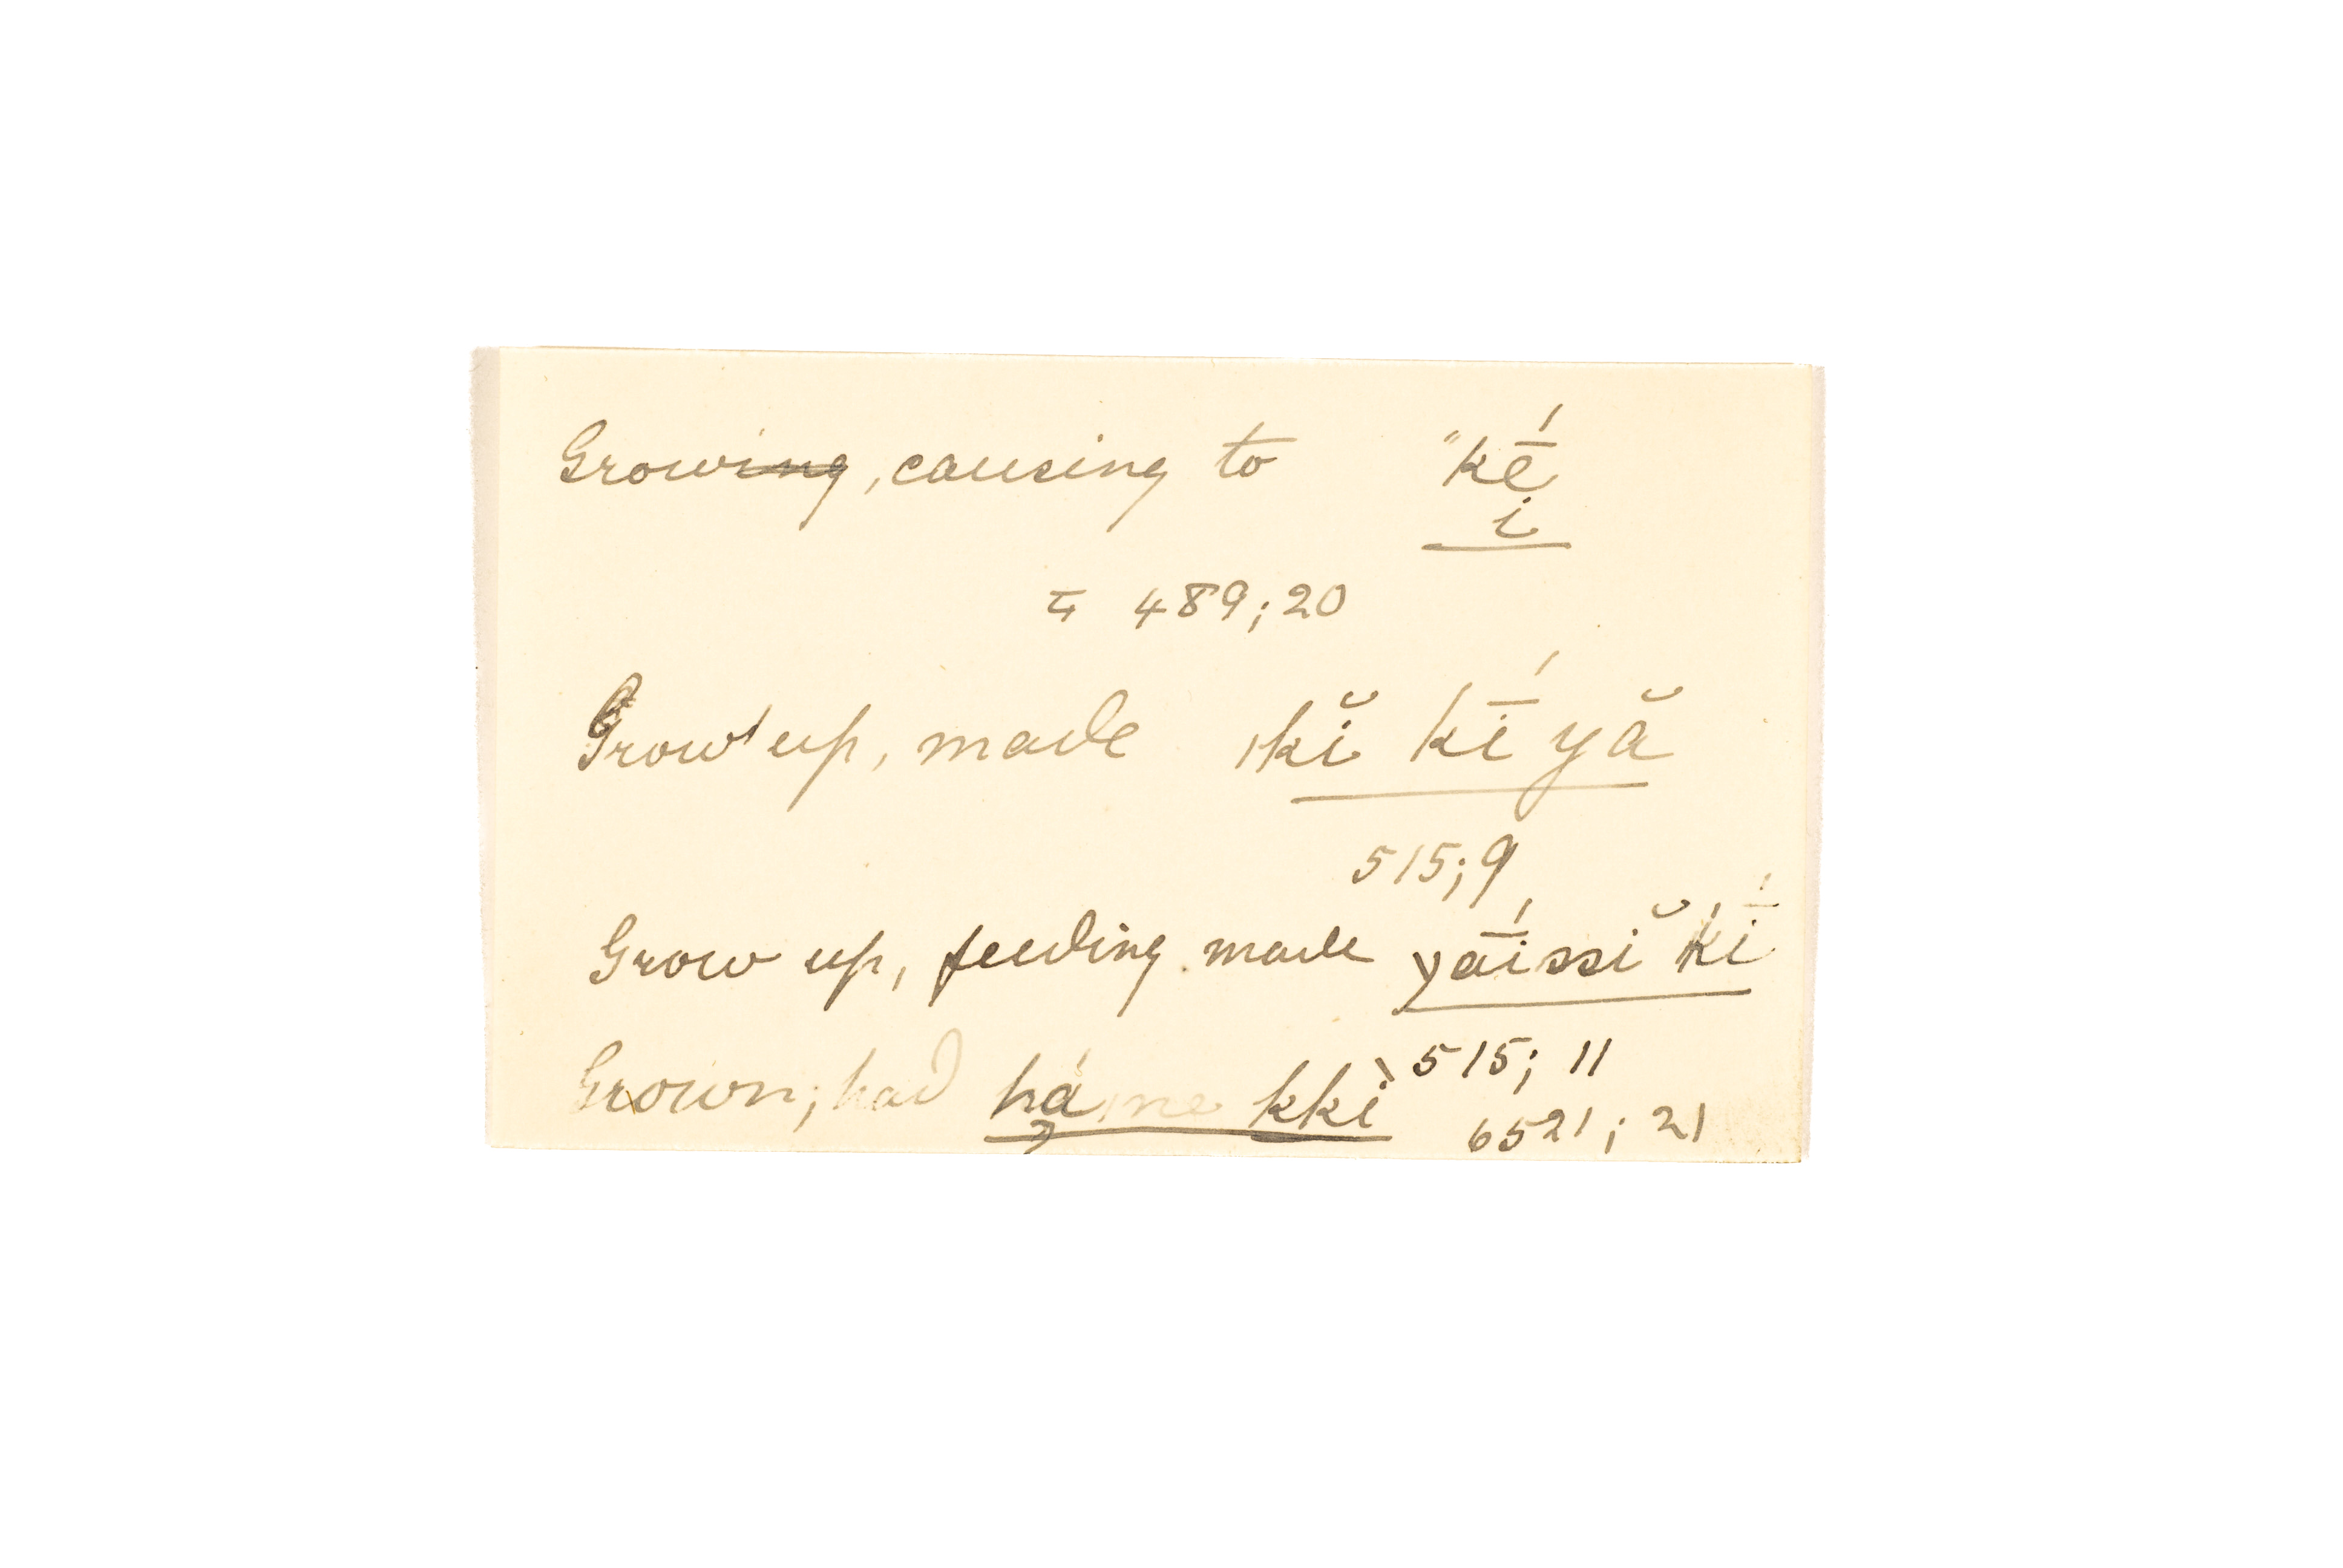 Growing, causing to "kḗ
i
= 489; 20
Grow up, made |kĭ kī́ yă
515; 9
Grow up, feeding made yā́issĭ k̍ī́
515; 11
Grown; had há̦ me kkì
6521; 21